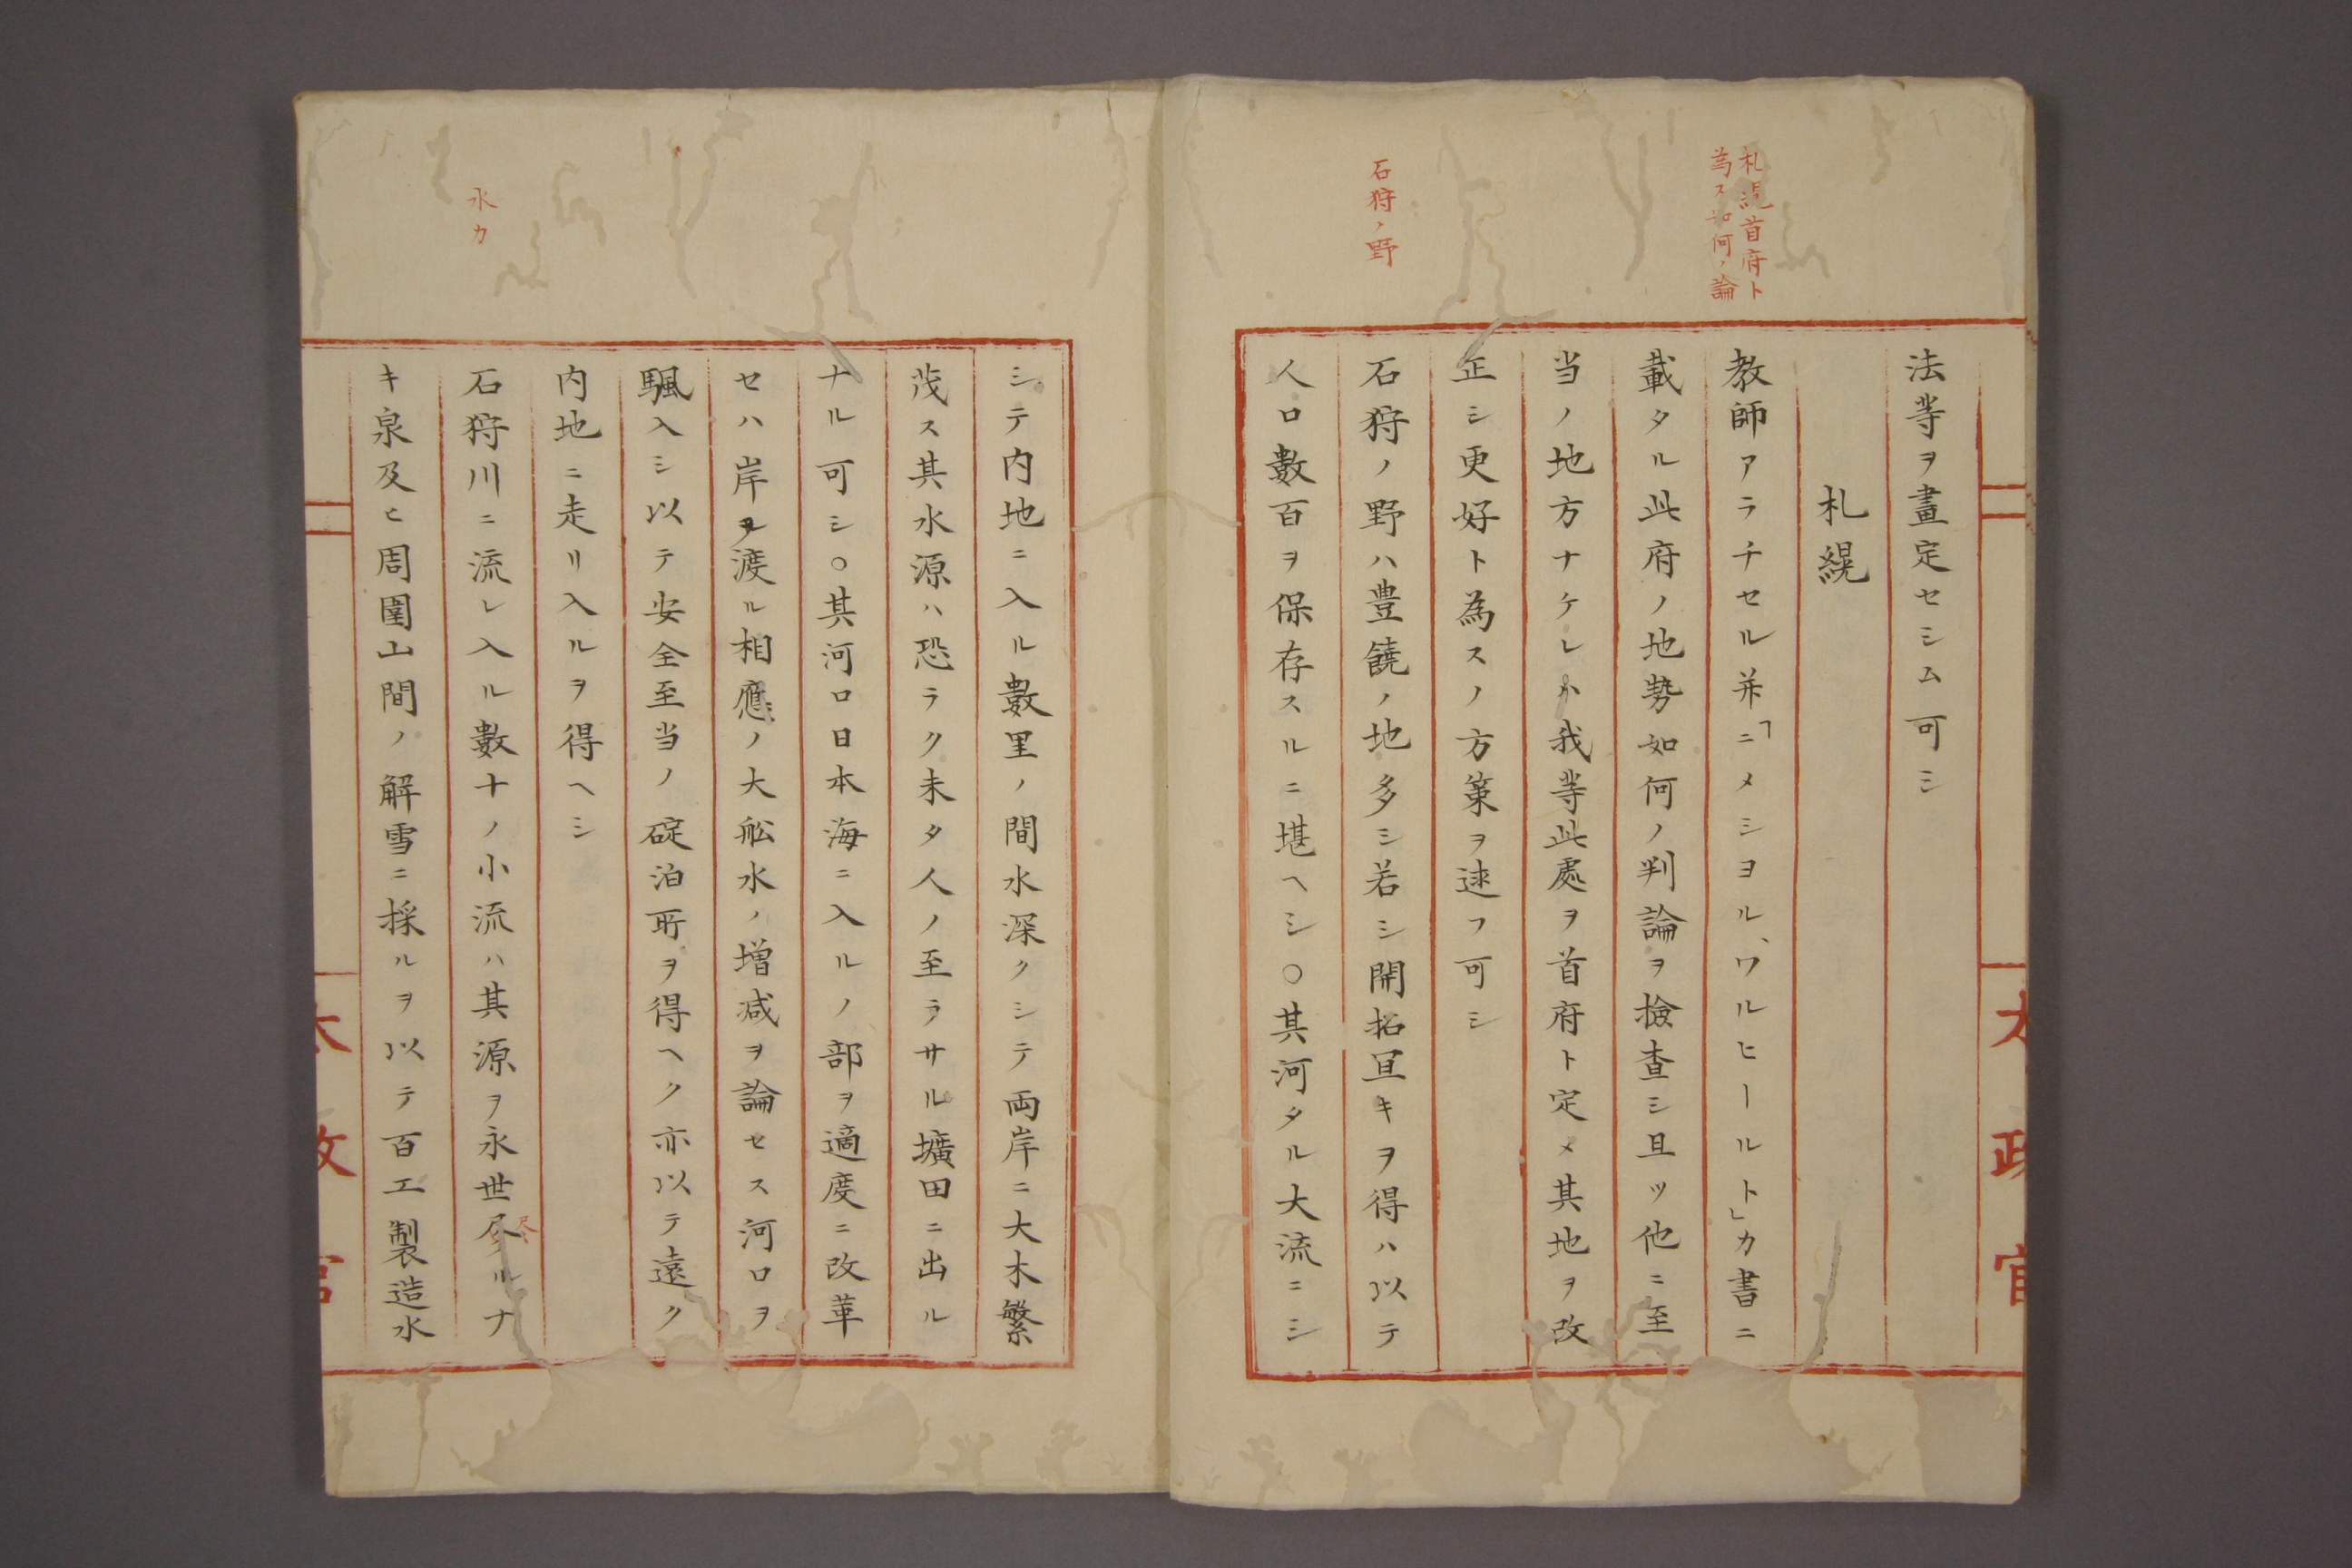 札幌首府ト
為ス如何ノ論
石狩ノ野
法等ヲ畫定セシム可シ
札幌
教師アラチセル并ニ「メシヨル、ワルヒールト」カ書ニ
載タル此府ノ地勢如何ノ判論ヲ撿査シ且ツ他ニ至
当ノ地方ナケレハ我等此處ヲ首府ト定メ其地ヲ改
正シ更好ト為スノ方策ヲ逑フ可シ
石狩ノ野ハ豊饒ノ地多シ若シ開拓宜キヲ得ハ以テ
人口數百ヲ保存スルニ堪ヘシ○其河タル大流ニシ
太政官
水力
シテ内地ニ入ル數里ノ間水深クシテ両岸ニ大木繁
茂ス其水源ハ恐ラク未タ人ノ至ラサル壙田ニ出ル
ナル可シ○其河口日本海ニ入ルノ部ヲ適度ニ改革
セハ岸ヲ渡ル相應ノ大舩水ノ増減ヲ論セス河口ヲ
颿入シ以テ安全至当ノ碇泊所ヲ得ヘク亦以テ遠ク
内地ニ走リ入ルヲ得ヘシ
石狩川ニ流レ入ル數十ノ小流ハ其源ヲ永世尽ルナ
尽
キ泉及ヒ周圍山間ノ解雪ニ採ルヲ以テ百工製造水
太政官